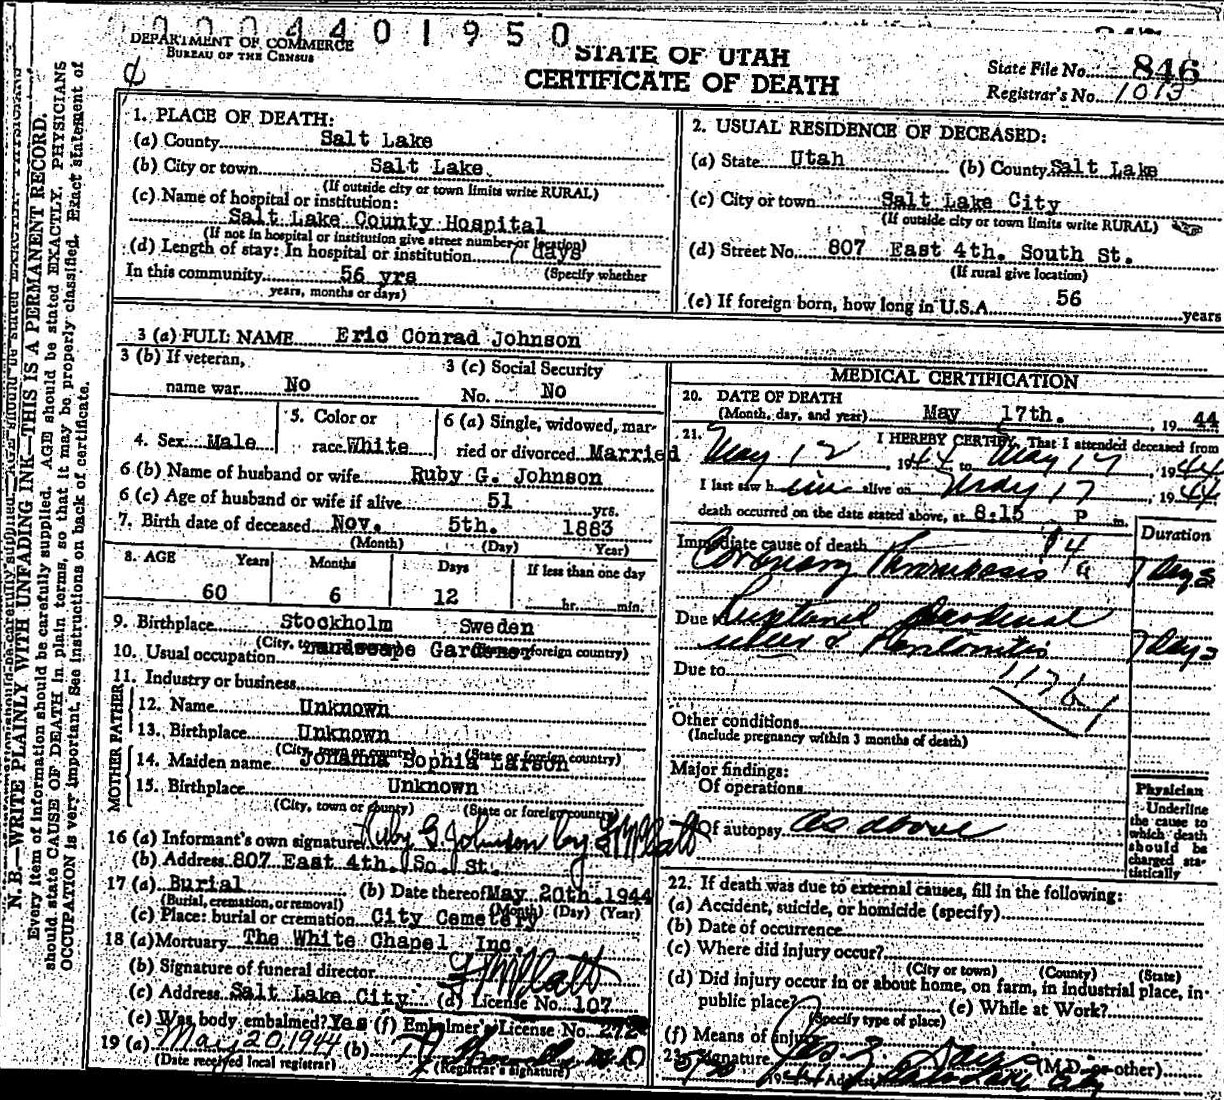 0004401950
DEPARTMENT OF COMMERCE
BUREAU OF THE CENSUS
STATE OF UTAH
CERTIFICATE OF DEATH
State File No. 846
Registrar's No. 1013
N. B.—WRITE PLAINLY WITH UNFADING INK—THIS IS A PERMANENT RECORD.
Every item of information should be carefully supplied. AGE should be stated EXACTLY. PHYSICIANS
should state CAUSE OF DEATH in plain terms, so that it may be properly classified. Exact statement of
OCCUPATION is very important. See instructions on back of certificate.
1. PLACE OF DEATH:
(a) County Salt Lake
(b) City or town Salt Lake
(If outside city or town limits write RURAL)
(c) Name of hospital or institution:
Salt Lake County Hospital
(If not in hospital or institution give street number or location)
(d) Length of stay: In hospital or institution 7 days
(Specify whether
In this community 56 yrs
years, months or days)
2. USUAL RESIDENCE OF DECEASED:
(a) State Utah (b) County Salt Lake
(c) City or town Salt Lake City
(If outside city or town limits write RURAL)
(d) Street No. 807 East 4th. South St.
(If rural give location)
(e) If foreign born, how long in U.S.A. 56 years
3 (a) FULL NAME Eric Conrad Johnson
3 (b) If veteran,
name war No
3 (c) Social Security
No. No
4. Sex Male
5. Color or
race White
6 (a) Single, widowed, mar-
ried or divorced Married
6 (b) Name of husband or wife Ruby G. Johnson
6 (c) Age of husband or wife if alive 51 yrs.
7. Birth date of deceased Nov. 5th. 1883
(Month) (Day) Year)
8. AGE Years Months Days If less than one day
60 6 12 hr. min.
9. Birthplace Stockholm Sweden
(City, town or county) (State or foreign country)
10. Usual occupation Landscape Gardener
11. Industry or business
FATHER
12. Name Unknown
13. Birthplace Unknown
(City, town or county) (State or foreign country)
MOTHER
14. Maiden name Johanna Sophia Larson
15. Birthplace Unknown
(City, town or county) (State or foreign country)
16 (a) Informant's own signature Ruby G. Johnson by
(b) Address 807 East 4th. So. St.
17 (a) Burial (b) Date thereof May 20th. 1944
(Burial, cremation, or removal) (Month) (Day) (Year)
(c) Place: burial or cremation City Cemetery
18 (a) Mortuary The White Chapel Inc.
(b) Signature of funeral director
(c) Address Salt Lake City (d) License No. 107
(e) Was body embalmed? Yes (f) Embalmer's License No. 272
19 (a) May 20, 1944 (b)
(Date received local registrar) (Registrar's signature)
MEDICAL CERTIFICATION
20. DATE OF DEATH
(Month, day, and year) May 17th. , 19 44
21. I HEREBY CERTIFY, That I attended deceased from
May 12, 1944 to May 17, 1944
I last saw him alive on May 17, 1944
death occurred on the date stated above, at 8:15 P m.
Duration
Immediate cause of death
Coronary Thrombosis 7 days
Due to
ulcer & Peritonitis 7 days
Due to
Other conditions
(Include pregnancy within 3 months of death)
Major findings:
Of operations
Of autopsy as above
Physician
Underline
the cause to
which death
should be
charged sta-
tistically
22. If death was due to external causes, fill in the following:
(a) Accident, suicide, or homicide (specify)
(b) Date of occurrence
(c) Where did injury occur?
(City or town) (County) (State)
(d) Did injury occur in or about home, on farm, in industrial place, in
public place? (e) While at Work?
(Specify type of place)
(f) Means of injury
23. Signature (M.D. or other)
5/20 1944 Address